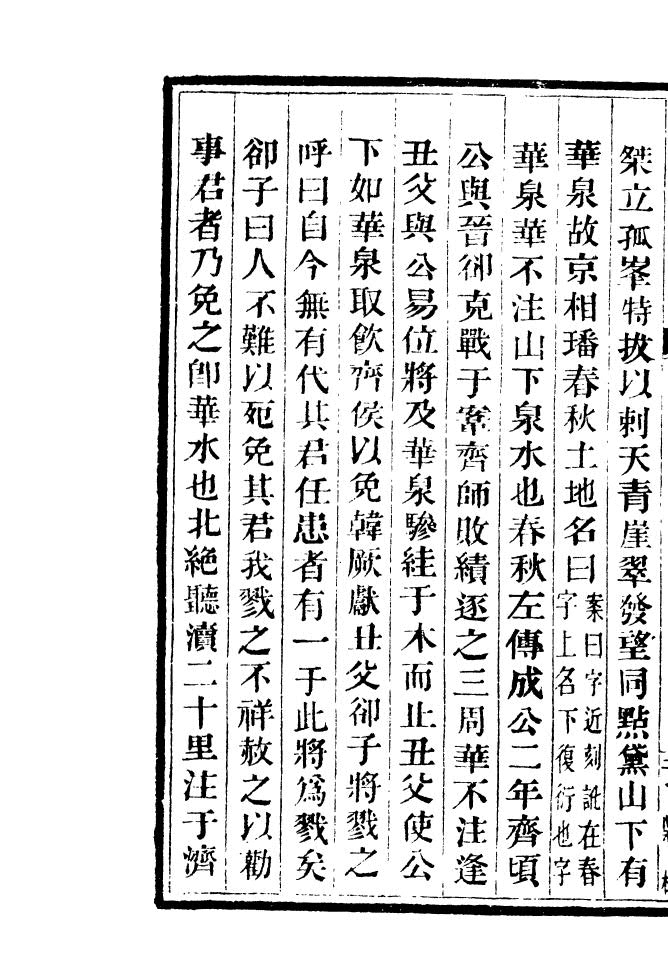 桀立孤峯特拔以刺天青崖翠發望同點黛山下有
華泉故京相璠春秋土地名曰案曰字近刻訛在春字上名下復衍也字
華泉華不注山下泉水也春秋左傳成公二年齊頃
公與晉卻克戰于鞌齊師敗績逐之三周華不注逢
丑父與公易位將及華泉驂絓于木而止丑父使公
下如華泉取飲齊侯以免韓厥獻丑父卻子將戮之
呼曰自今無有代其君任患者有一于此將爲戮矣
卻子曰人不難以死免其君我戮之不祥赦之以勸
事君者乃免之卽華水也北絶聽瀆二十里注于濟